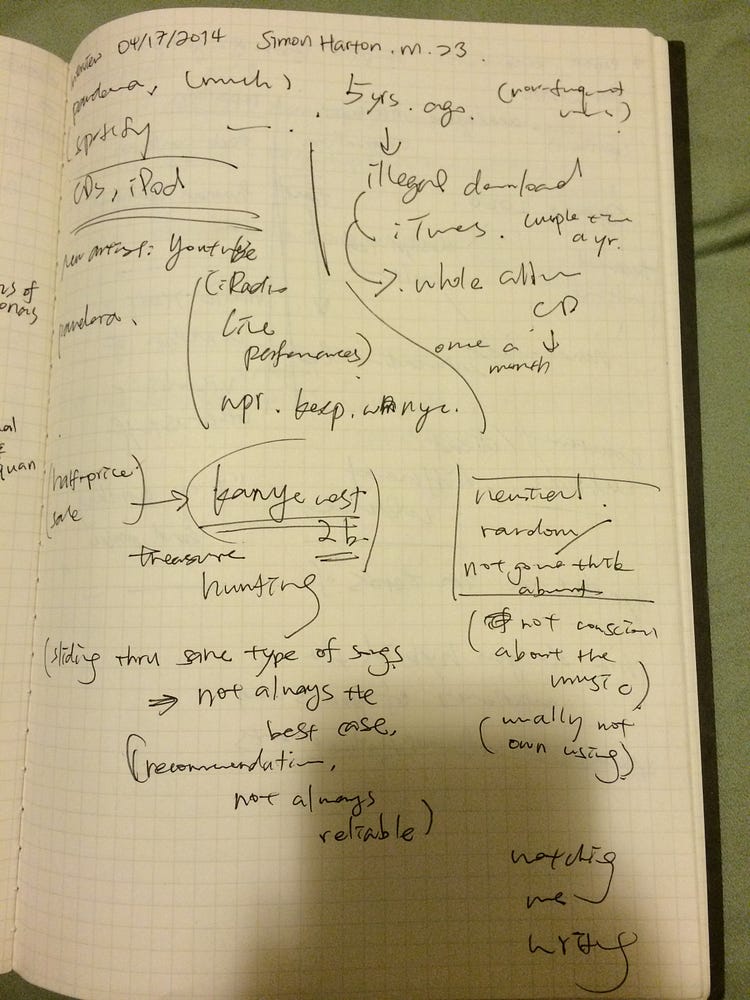 04/17/2014 Simon Harton. m. 23.
pandora, (much)
spotify
CDs, iPod
new artist: Youtube
(iRadio
live
performances)
pandora.
npr. kexp. wnyc.
5 yrs. ago.
illegal download
iTunes. couple time
a yr.
whole album
CD
once a
month
half-price
sale
kanye west
treasure
hunting
(sliding thru same type of songs
⇒ not always the
best case.
(recommendation,
not always
reliable)
neutral.
random
not gonna think
about
(not conscious
about the
music)
(usually not
own using)
watching
me
writing
ns of
al
quan